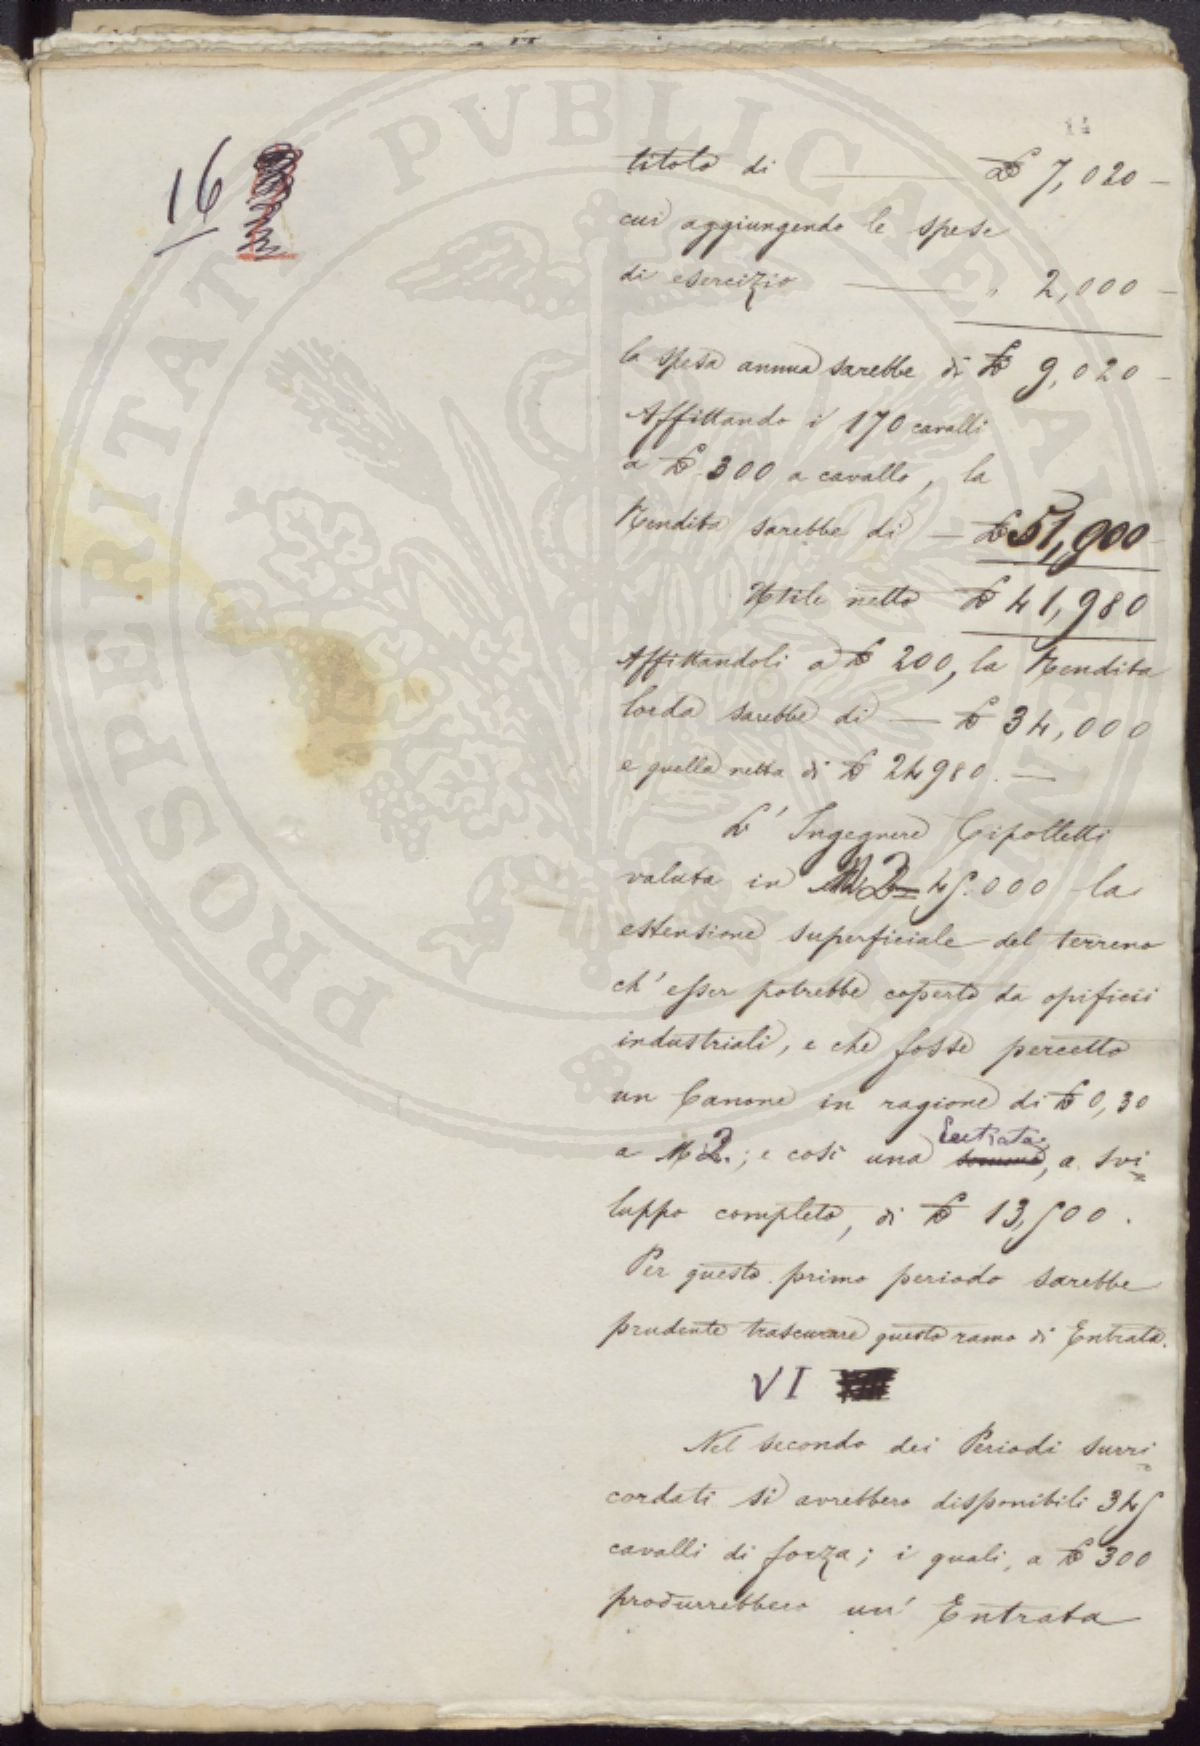 14
16
titolo di ——— £ 7,020 —
cui aggiungendo le spese
di esercizio ——— " 2,000 —
la spesa annua sarebbe di £ 9,020 —
Affittando i 170 cavalli
a £ 300 a cavallo, la
Rendita sarebbe di — £ 51,900 —
Utile netto £ 41,980
Affittandoli a £ 200, la Rendita
lorda sarebbe di — £ 34,000
e quella netta di £ 24980. —
L' Ingegnere Cipolletti
valuta in M2 45.000 la
estensione superficiale del terreno
ch' esser potrebbe coperto da opificii
industriali, e che fosse percetto
un Canone in ragione di £ 0,30
a M2.; e così una Entrata, a svi
luppo completo, di £ 13,500.
Per questo primo periodo sarebbe
prudente trascurare questo ramo di Entrata.
VI
Nel secondo dei Periodi surri
cordati si avrebbero disponibili 345
cavalli di forza; i quali, a £ 300
produrrebbero un' Entrata
PROSPERITATI PVBLICAE